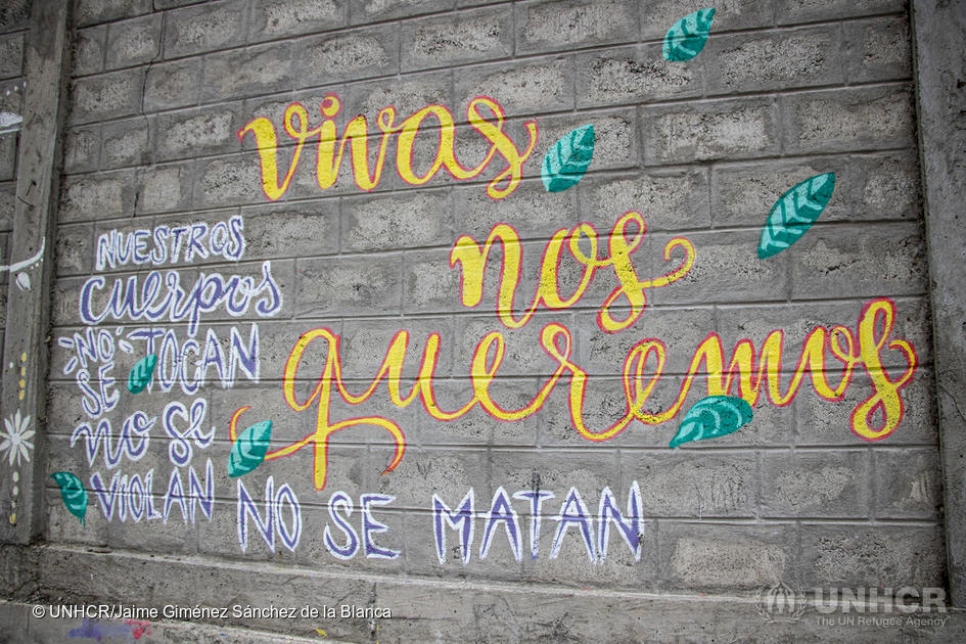 vivas
nos
queremos
NUESTROS
CUERPOS
NO SE TOCAN
NO SE
VIOLAN
NO SE MATAN
© UNHCR/Jaime Giménez Sánchez de la Blanca
UNHCR
The UN Refugee Agency